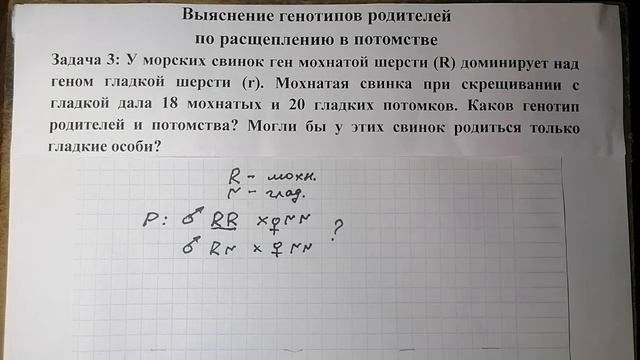 Выяснение генотипов родителей
по расщеплению в потомстве
Задача 3: У морских свинок ген мохнатой шерсти (R) доминирует над
геном гладкой шерсти (r). Мохнатая свинка при скрещивании с
гладкой дала 18 мохнатых и 20 гладких потомков. Каков генотип
родителей и потомства? Могли бы у этих свинок родиться только
гладкие особи?
R - мохн.
r - глад.
P: ♂ RR x ♀ rr
♂ Rr x ♀ rr ?